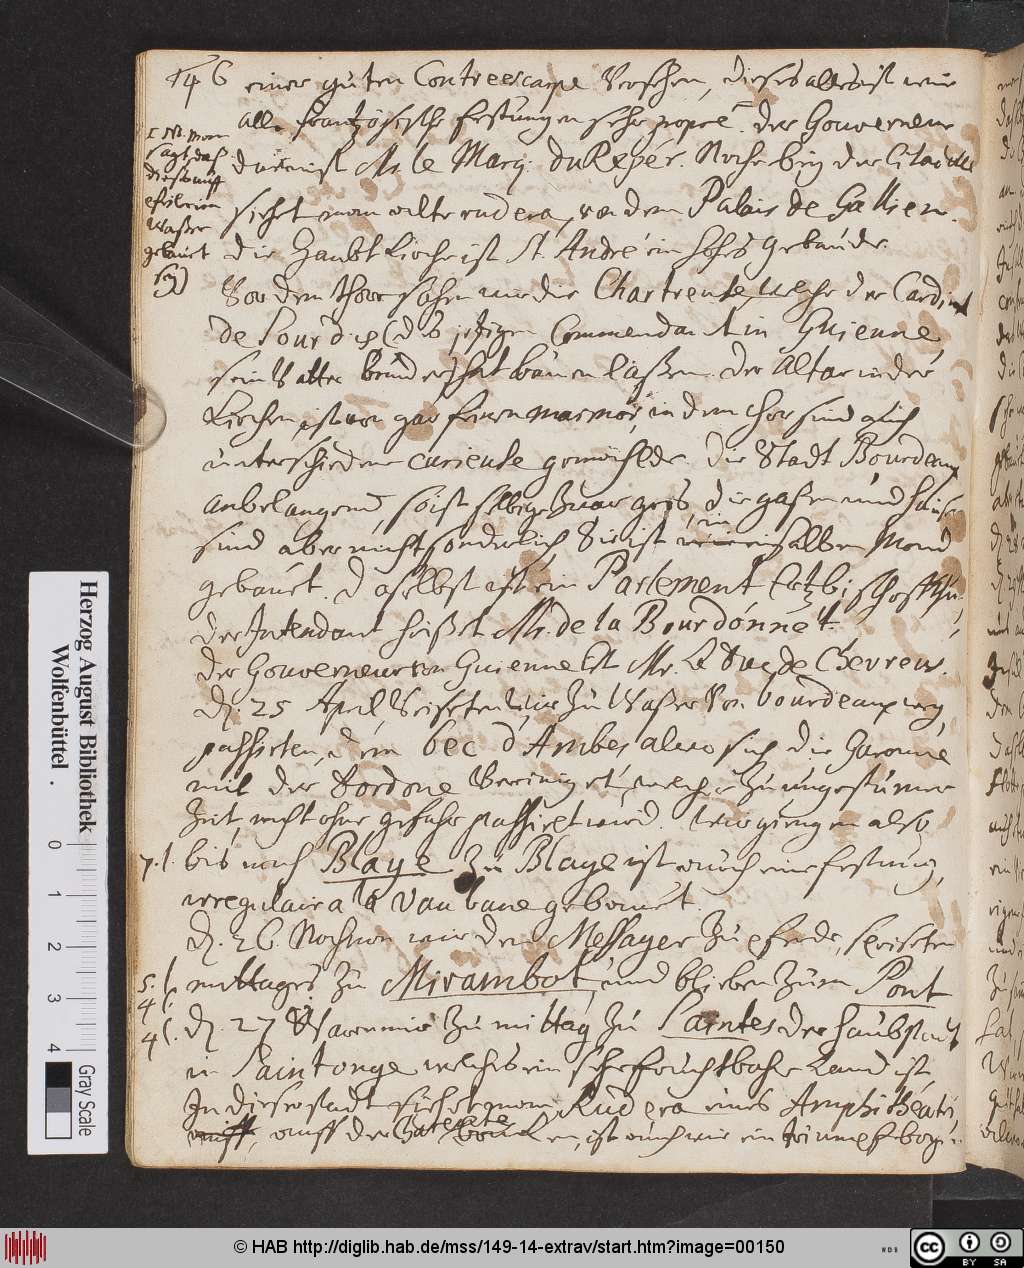 146 einer guten Contreescarpe Versehen, dieses alles ist wie
alle französische festungen sehr propre. der Gouverneur
darin ist Mr. le Marq. du Repér. Nache bey der Citadelle
siehet man alte rudera, von dem Palais de Gallien.
die haubt Kirche ist St. André ein hohes gebaüde.
NB. Man
sagt daß
dieses auff
Waßer
gebauet
sey
Vor dem thor sahen wir die Chartreuse, welche der Cardinal
de Sourdis (des jtzigen Commendant in Guienne
sein Vatter Bruder) hat bauen laßen. Der Altar in der
Kirchen, ist von gar feinen marmor, in dem Chor sind auch
unterschiedene curieuse gemählde. Die Stadt Bourdeaux
anbelangend, so ist selbige zwar gros, die gaßen und haüser
sind aber nicht sonderlich, Sie ist wie in ein halben Mond
gebauet. daselbst ist ein Parlement Ertzbischoffthu,
der Intendant heißet Mr. de la Bourdonnet.
der Gouverneur von Guienne Est Mr. Le Duc de Chevreus.
d. 25 April, Reiseten wir zu Waßer Von bourdeaux weg,
passirten, dem bec d'Ambes alwo sich die Garonne
mit der Dordone Vereiniget, welches zu ungestümer
Zeit, nicht ohne gefahr passiret wird. wir giengen also
7. l. bis nach Blaye. Zu Blaye ist auch eine festung,
irregulair a la Vaubane gebauet.
d. 26. Nahmen wir den Messager zu pferde, speiseten
5. l. mittages zu Mirambot, und blieben zum Pont
4 l.
4 l. d. 27 Waren wir zu mittag zu Saintes der haubstadt
in Saintonge welches ein sehr fruchtbahr Land ist
In dieser stadt siehet man Rudera eines Amphitheatri,
auff der ist auch wie ein triumpfbogen
Herzog August Bibliothek
Wolfenbüttel
0 1 2 3 4
Gray Scale
© HAB http://diglib.hab.de/mss/149-14-extrav/start.htm?image=00150
WDB
cc BY SA